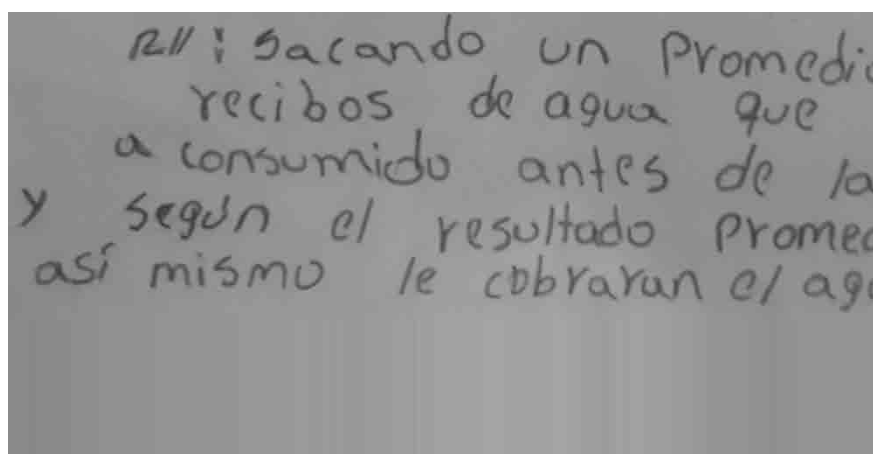 R//: Sacando un Promedio
recibos de agua que
a consumido antes de la
y según el resultado Promed
así mismo le cobraran el agu